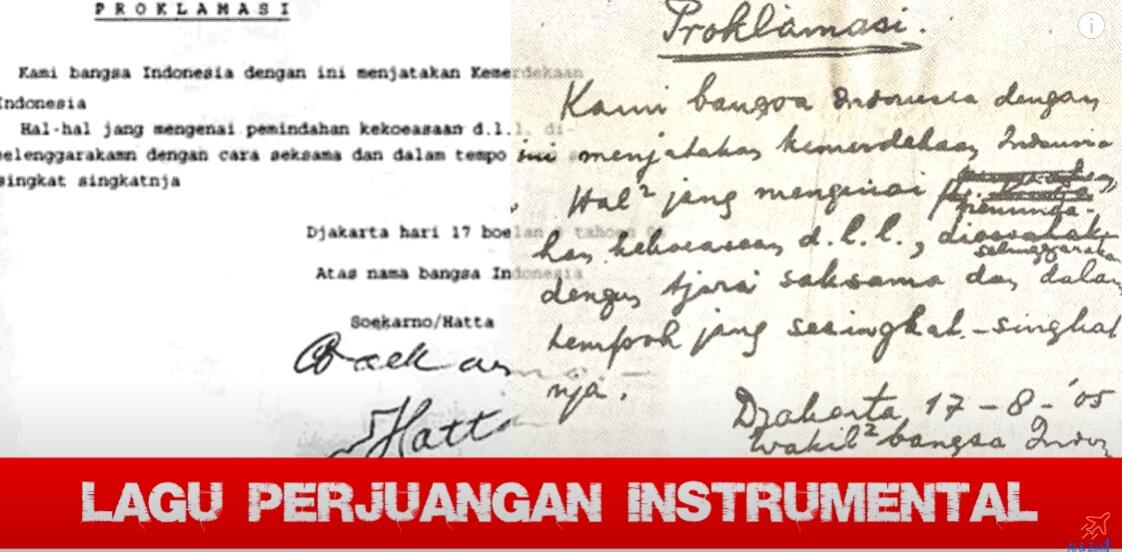 PROKLAMASI
Kami bangsa Indonesia dengan ini menjatakan Kemerdekaan
Indonesia
Hal-hal jang mengenai pemindahan kekoeasaan d.l.l. di-
selenggarakamn dengan cara seksama dan dalam tempo
singkat singkatnja
Djakarta hari 17 boelan tahoen
Atas nama bangsa Indonesia
Soekarno/Hatta
Soekarno
Hatta
Proklamasi.
Kami bangsa Indonesia dengan
ini menjatakan kemerdekaan Indonesia
Hal² jang mengenai
pemindahan kekoeasaan d.l.l., diselenggarakan
dengan tjara saksama dan dalam
tempoh jang sesingkat-singkat
nja.
Djakarta, 17-8-'05
Wakil² bangsa Indon
LAGU PERJUANGAN INSTRUMENTAL